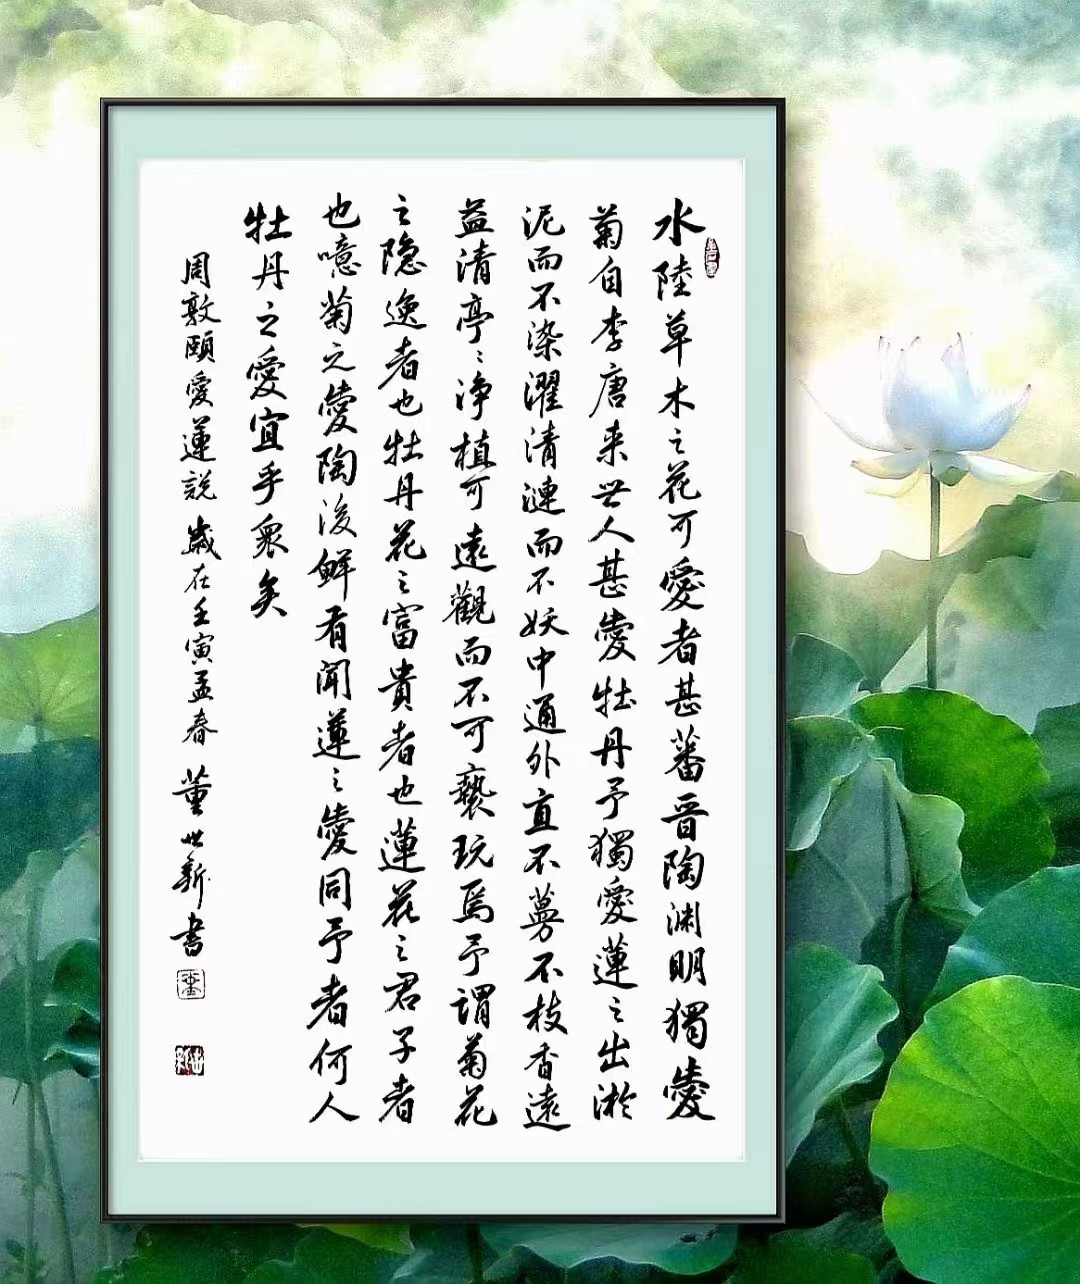 水陸草木之花可愛者甚蕃晋陶渊明獨愛
菊自李唐来世人甚愛牡丹予獨愛蓮之出淤
泥而不染濯清漣而不妖中通外直不蔓不枝香遠
益清亭〻净植可遠觀而不可褻玩焉予謂菊花
之隐逸者也牡丹花之富貴者也蓮花之君子者
也噫菊之愛陶後鮮有聞蓮之愛同予者何人
牡丹之愛宜乎眾矣
周敦頤愛蓮説 歲在壬寅孟春 董世新書